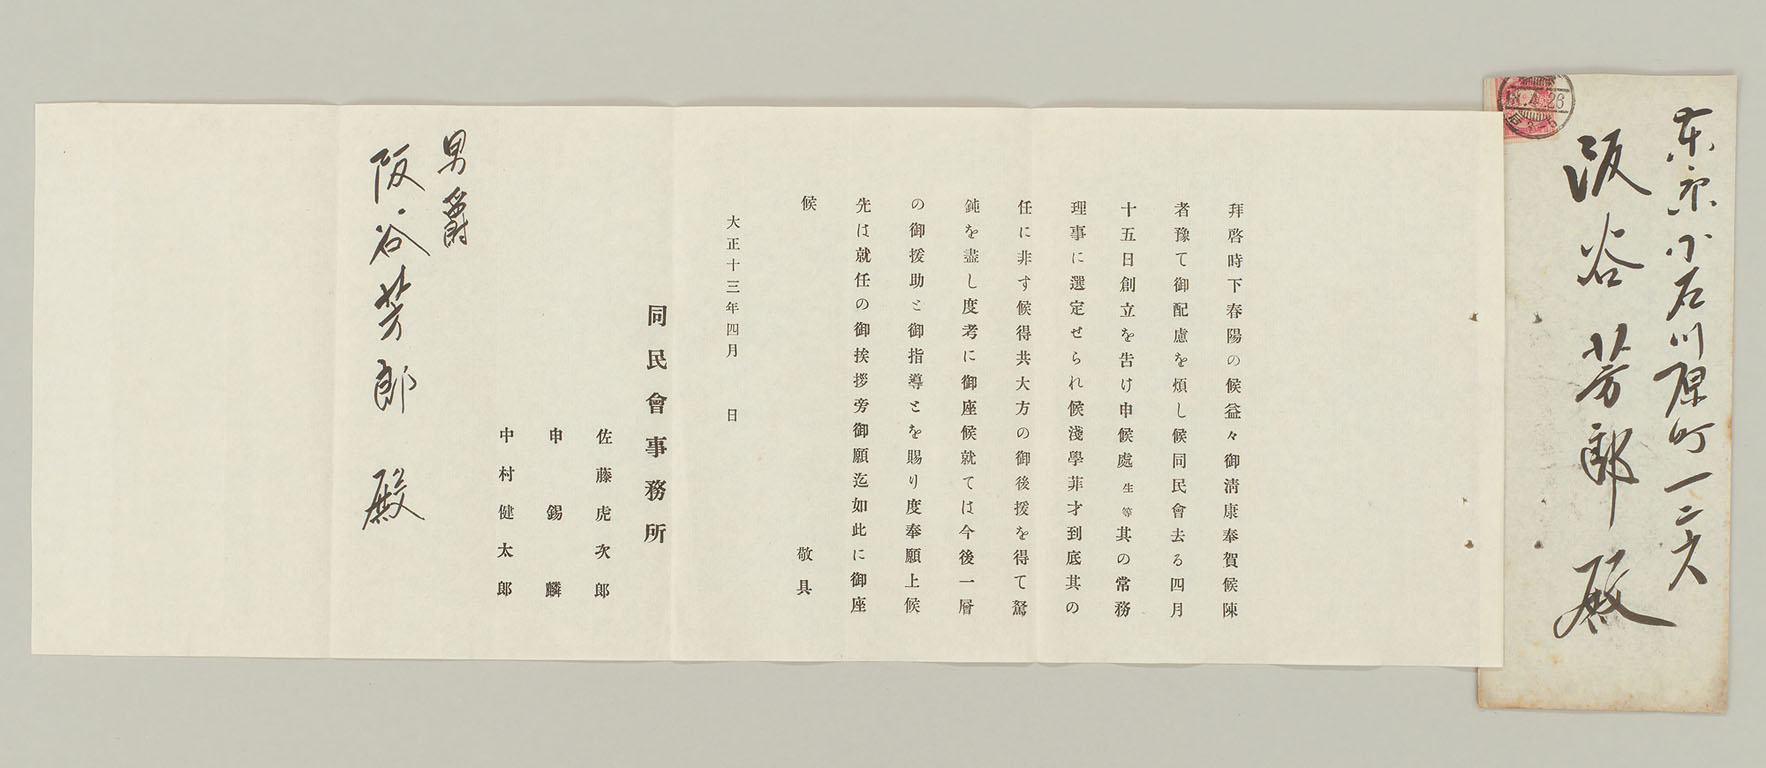 東京小石川原町一二六
阪谷芳郎殿
13.4.26
3-5
拜啓時下春陽の候益々御淸康奉賀候陳
者豫て御配慮を煩し候同民會去る四月
十五日創立を吿け申候處生等其の常務
理事に選定せられ候淺學菲才到底其の
任に非す候得共大方の御後援を得て駑
鈍を盡し度考に御座候就ては今後一層
の御援助と御指導とを賜り度奉願上候
先は就任の御挨拶旁御願迄如此に御座
候　　　　　　　　　　　　　敬具
大正十三年四月　　日
同民會事務所
佐藤虎次郎
申錫麟
中村健太郎
男爵
阪谷芳郎殿